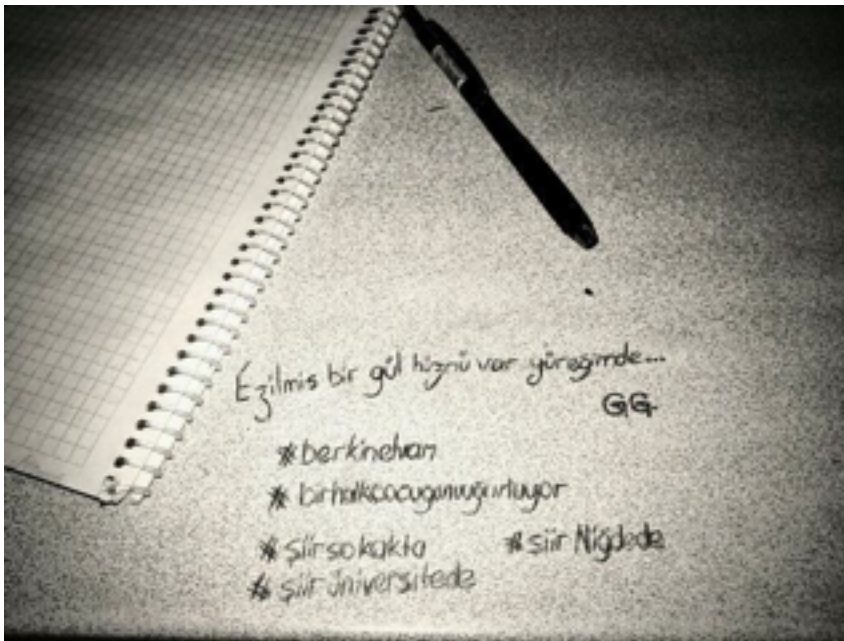 Ezilmis bir gül hüznü var yüreğimde...
GG.
#berkinelvan
#birhalkcocugunuuğurluyor
#şiirsokakta #şiir Niğdede
#şiir üniversitede